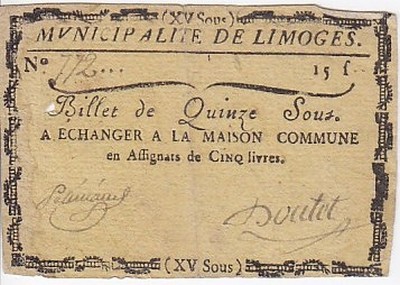 (XV Sous)
MVNICIPALITE DE LIMOGES.
No. 772... 15 f..
Billet de Quinze Sous.
A ECHANGER A LA MAISON COMMUNE
en Aſſignats de CINQ livres.
Doutet
(XV Sous)